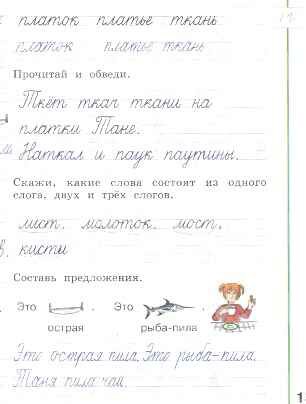 платок платье ткань
платок платье ткань
Прочитай и обведи.
Ткёт ткач ткани на
платки Тане.
Наткал и паук паутины.
Скажи, какие слова состоят из одного
слога, двух и трёх слогов.
лист, молоток, мост,
кисти
Составь предложения.
Это . Это .
острая рыба-пила
Это острая пила. Это рыба-пила.
Таня пила чай.
1